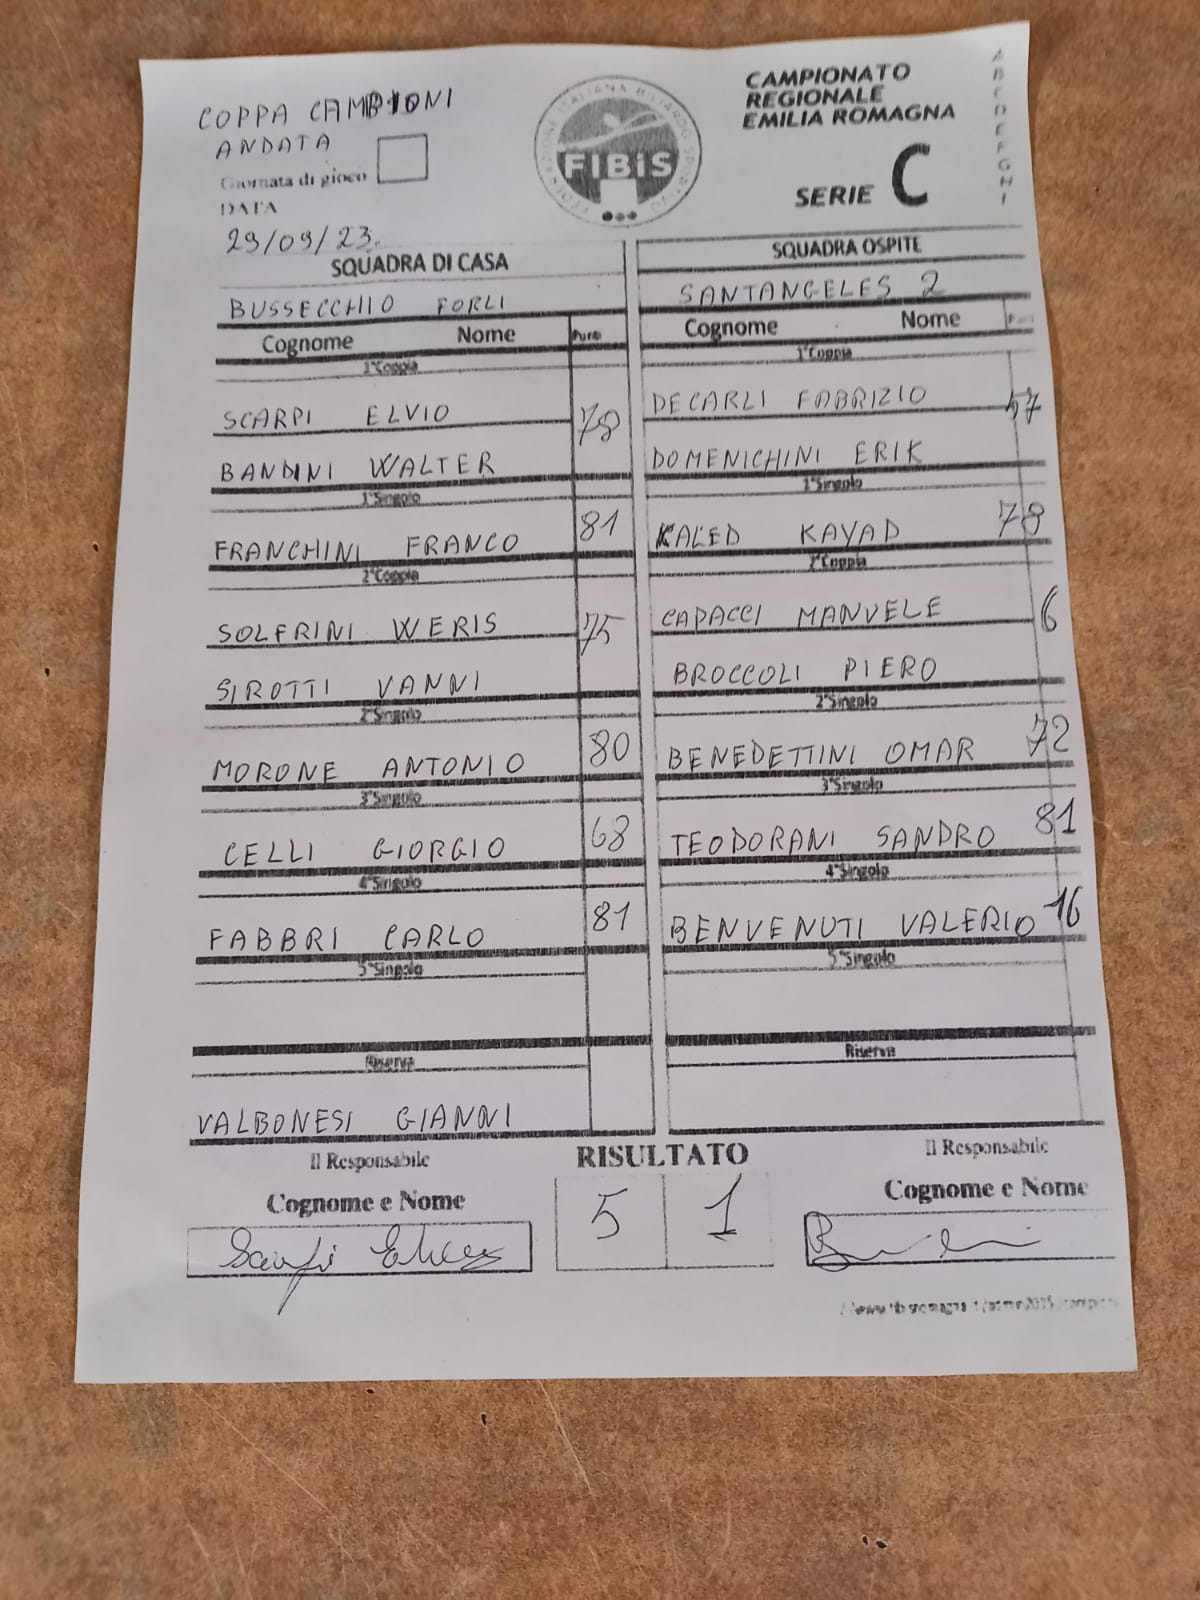 COPPA CAMPIONI
ANDATA
Giornata di gioco
DATA
29/09/23.
FIBiS
CAMPIONATO
REGIONALE
EMILIA ROMAGNA
SERIE C
A B C D E F G H I
SQUADRA DI CASA
BUSSECCHIO FORLI
Cognome Nome Punti
1°Coppia
SCARPI ELVIO 78
BANDINI WALTER
1°Singolo
FRANCHINI FRANCO 81
2°Coppia
SOLFRINI WERIS 75
SIROTTI VANNI
2°Singolo
MORONE ANTONIO 80
3°Singolo
CELLI GIORGIO 68
4°Singolo
FABBRI CARLO 81
5°Singolo
Riserva
VALBONESI GIANNI
SQUADRA OSPITE
SANTANGELES 2
Cognome Nome
1°Coppia
DECARLI FABRIZIO
DOMENICHINI ERIK
1°Singolo
KALED KAYAD 78
2°Coppia
CAPACCI MANUELE 6
BROCCOLI PIERO
2°Singolo
BENEDETTINI OMAR 72
3°Singolo
TEODORANI SANDRO 81
4°Singolo
BENVENUTI VALERIO 16
5°Singolo
Riserva
Il Responsabile
Cognome e Nome
RISULTATO
5 1
Il Responsabile
Cognome e Nome